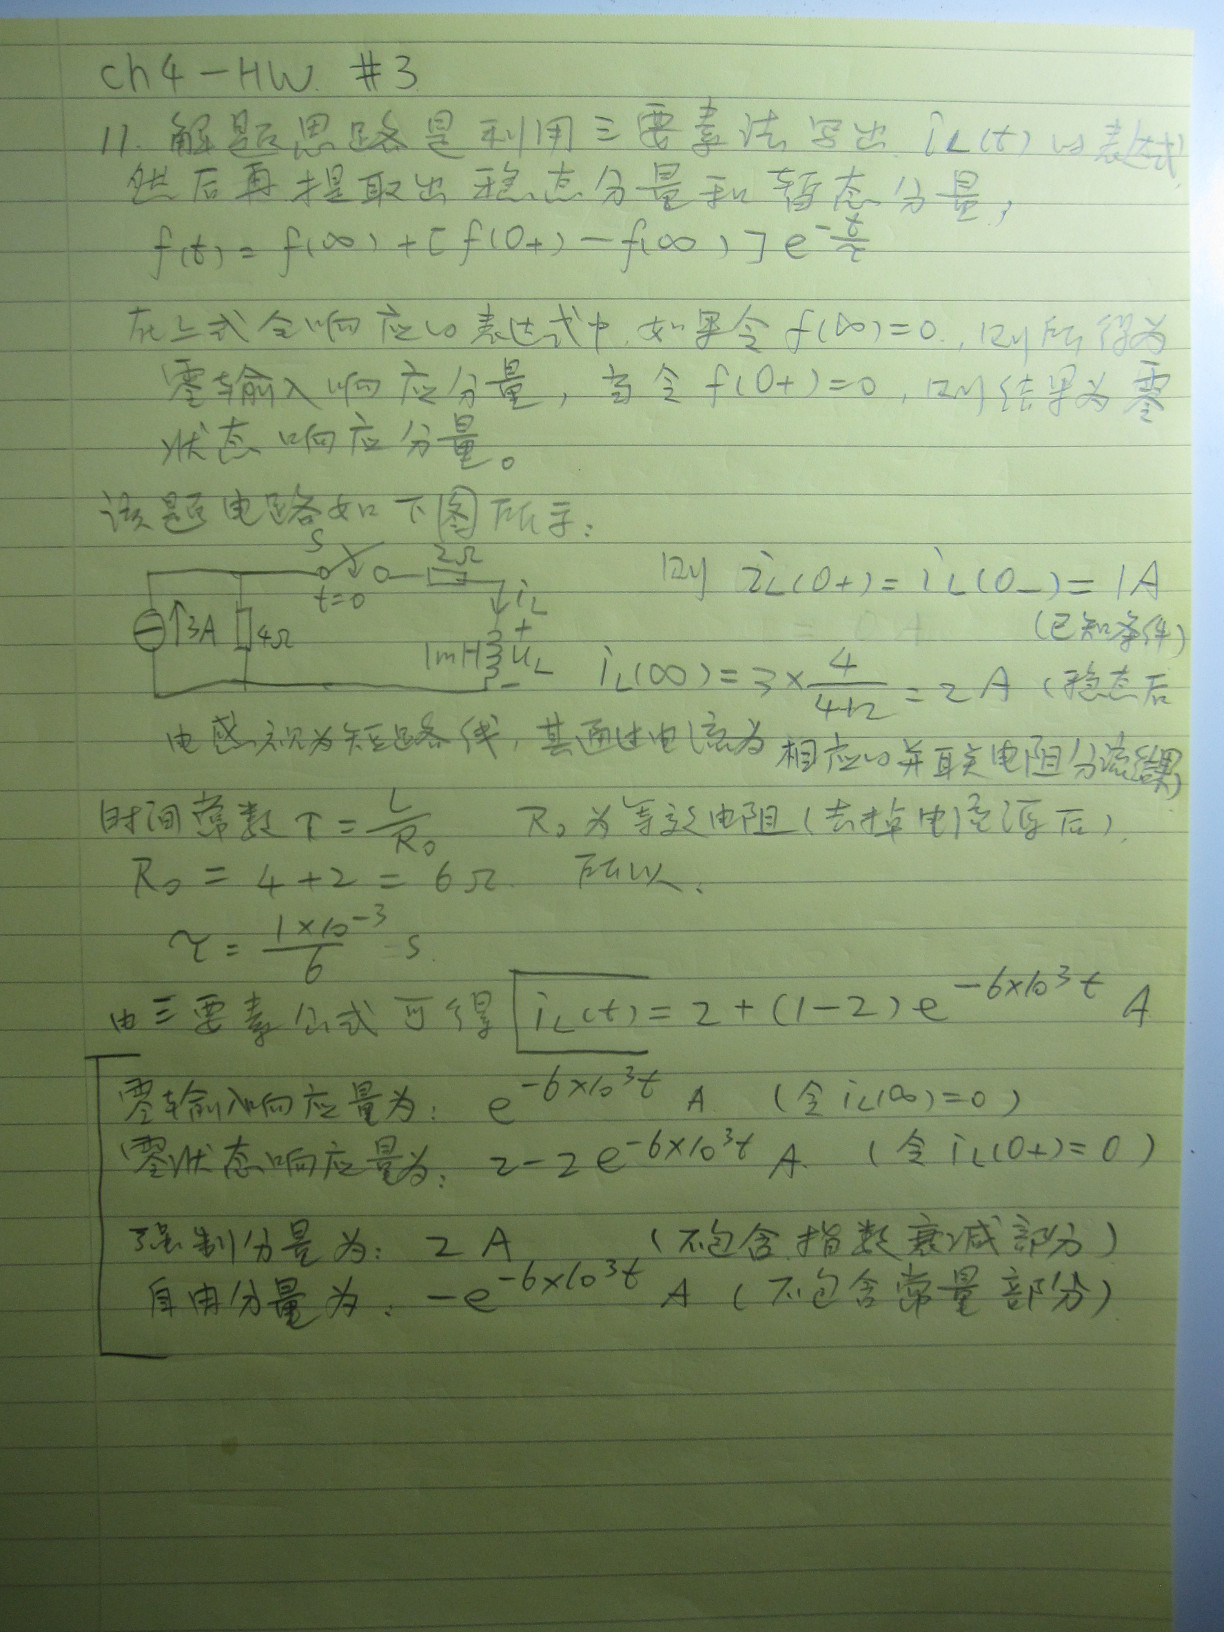 ch4-HW #3
11. 解题思路是利用三要素法写出 iL(t) 的表达式,
然后再提取出稳态分量和暂态分量,
f(t) = f(∞) + [f(0+) - f(∞)] e^{-t/τ}
在上式全响应的表达式中, 如果令 f(∞)=0, 则所得为
零输入响应分量, 当令 f(0+)=0, 则结果为零
状态响应分量。
该题电路如下图所示:
S 2Ω
t=0
↑3A 4Ω 1mH iL + uL -
则 iL(0+) = iL(0-) = 1A
(已知条件)
iL(∞) = 3 × 4/(4+2) = 2A (稳态后
电感视为短路线, 其通过电流为相应的并联电阻分流结果)
时间常数 τ = L/R0 R0 为等效电阻 (去掉电流源后).
R0 = 4+2 = 6Ω 所以,
τ = 1×10^{-3}/6 s
由三要素公式可得 iL(t) = 2 + (1-2) e^{-6×10^3t} A
零输入响应量为: e^{-6×10^3t} A (令 iL(∞)=0)
零状态响应量为: 2-2e^{-6×10^3t} A (令 iL(0+)=0)
强制分量为: 2 A (不包含指数衰减部分)
自由分量为: -e^{-6×10^3t} A (不包含常量部分)